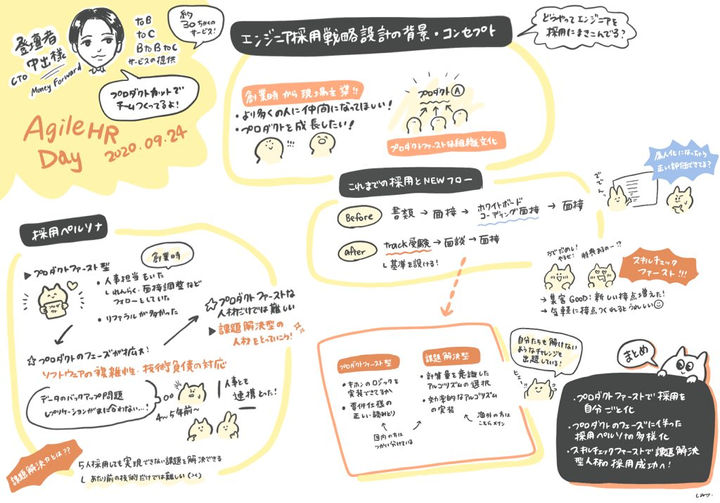 登壇者
中出様
CTO
Money Forward
to B
to C
B to B to C
サービスの提供
約
30ちかくの
サービス!
プロダクトカットで
チームつくってるよ!
Agile HR
Day 2020.09.24
エンジニア採用戦略設計の背景・コンセプト
どうやってエンジニアを
採用にまきこんでる?
創業時から現場主導!!
・より多くの人に仲間になってほしい!
・プロダクトを成長したい!
プロダクトA
プロダクトファーストな組織文化
これまでの採用とNEWフロー
Before 書類 → 面接 → ホワイトボード
コーディング面接 → 面接
after track受験 → 面談 → 面接
基準を設ける!
属人化になっちゃう
正しい評価できてる?
スキルチェック
ファースト!!!
→ 集客GOOD:新しい接点も増えた!
→ 気軽に接点つくれるとうれしい
採用ペルソナ
▶プロダクトファースト型
創業時
・人事担当もいた
れんらく、面接調整など
フォローしていた
・リファラルが多かった
☆プロダクトファーストな
人材だけでは難しい
▶課題解決型の
人材をとっていこう!
☆プロダクトのフェーズが拡大!
ソフトウェアの複雑性・技術負債の対応
データのバックアップ問題
レプリケーションがまに合わない…!
4〜5年前〜
人事とも
連携とった!
課題解決力とは??
5人採用しても実現できない課題を解決できる
あたり前の技術だけでは難しい
プロダクトファースト型
・キホンのロジックを
実装できてるか
・要件仕様の
正しい読みとり
課題解決型
・計算量を意識した
アルゴリズムの選択
・効率的なアルゴリズム
の実装
国内の方は
つかい分けている
海外の方は
こちらメイン
自分たちも解けない
ようなチャレンジを
出題している!
まとめ
・プロダクトファーストで採用を
自分ごと化
・プロダクトのフェーズに伴った
採用ペルソナの多様化
・スキルチェックファーストで課題解決
型人材の採用成功へ!